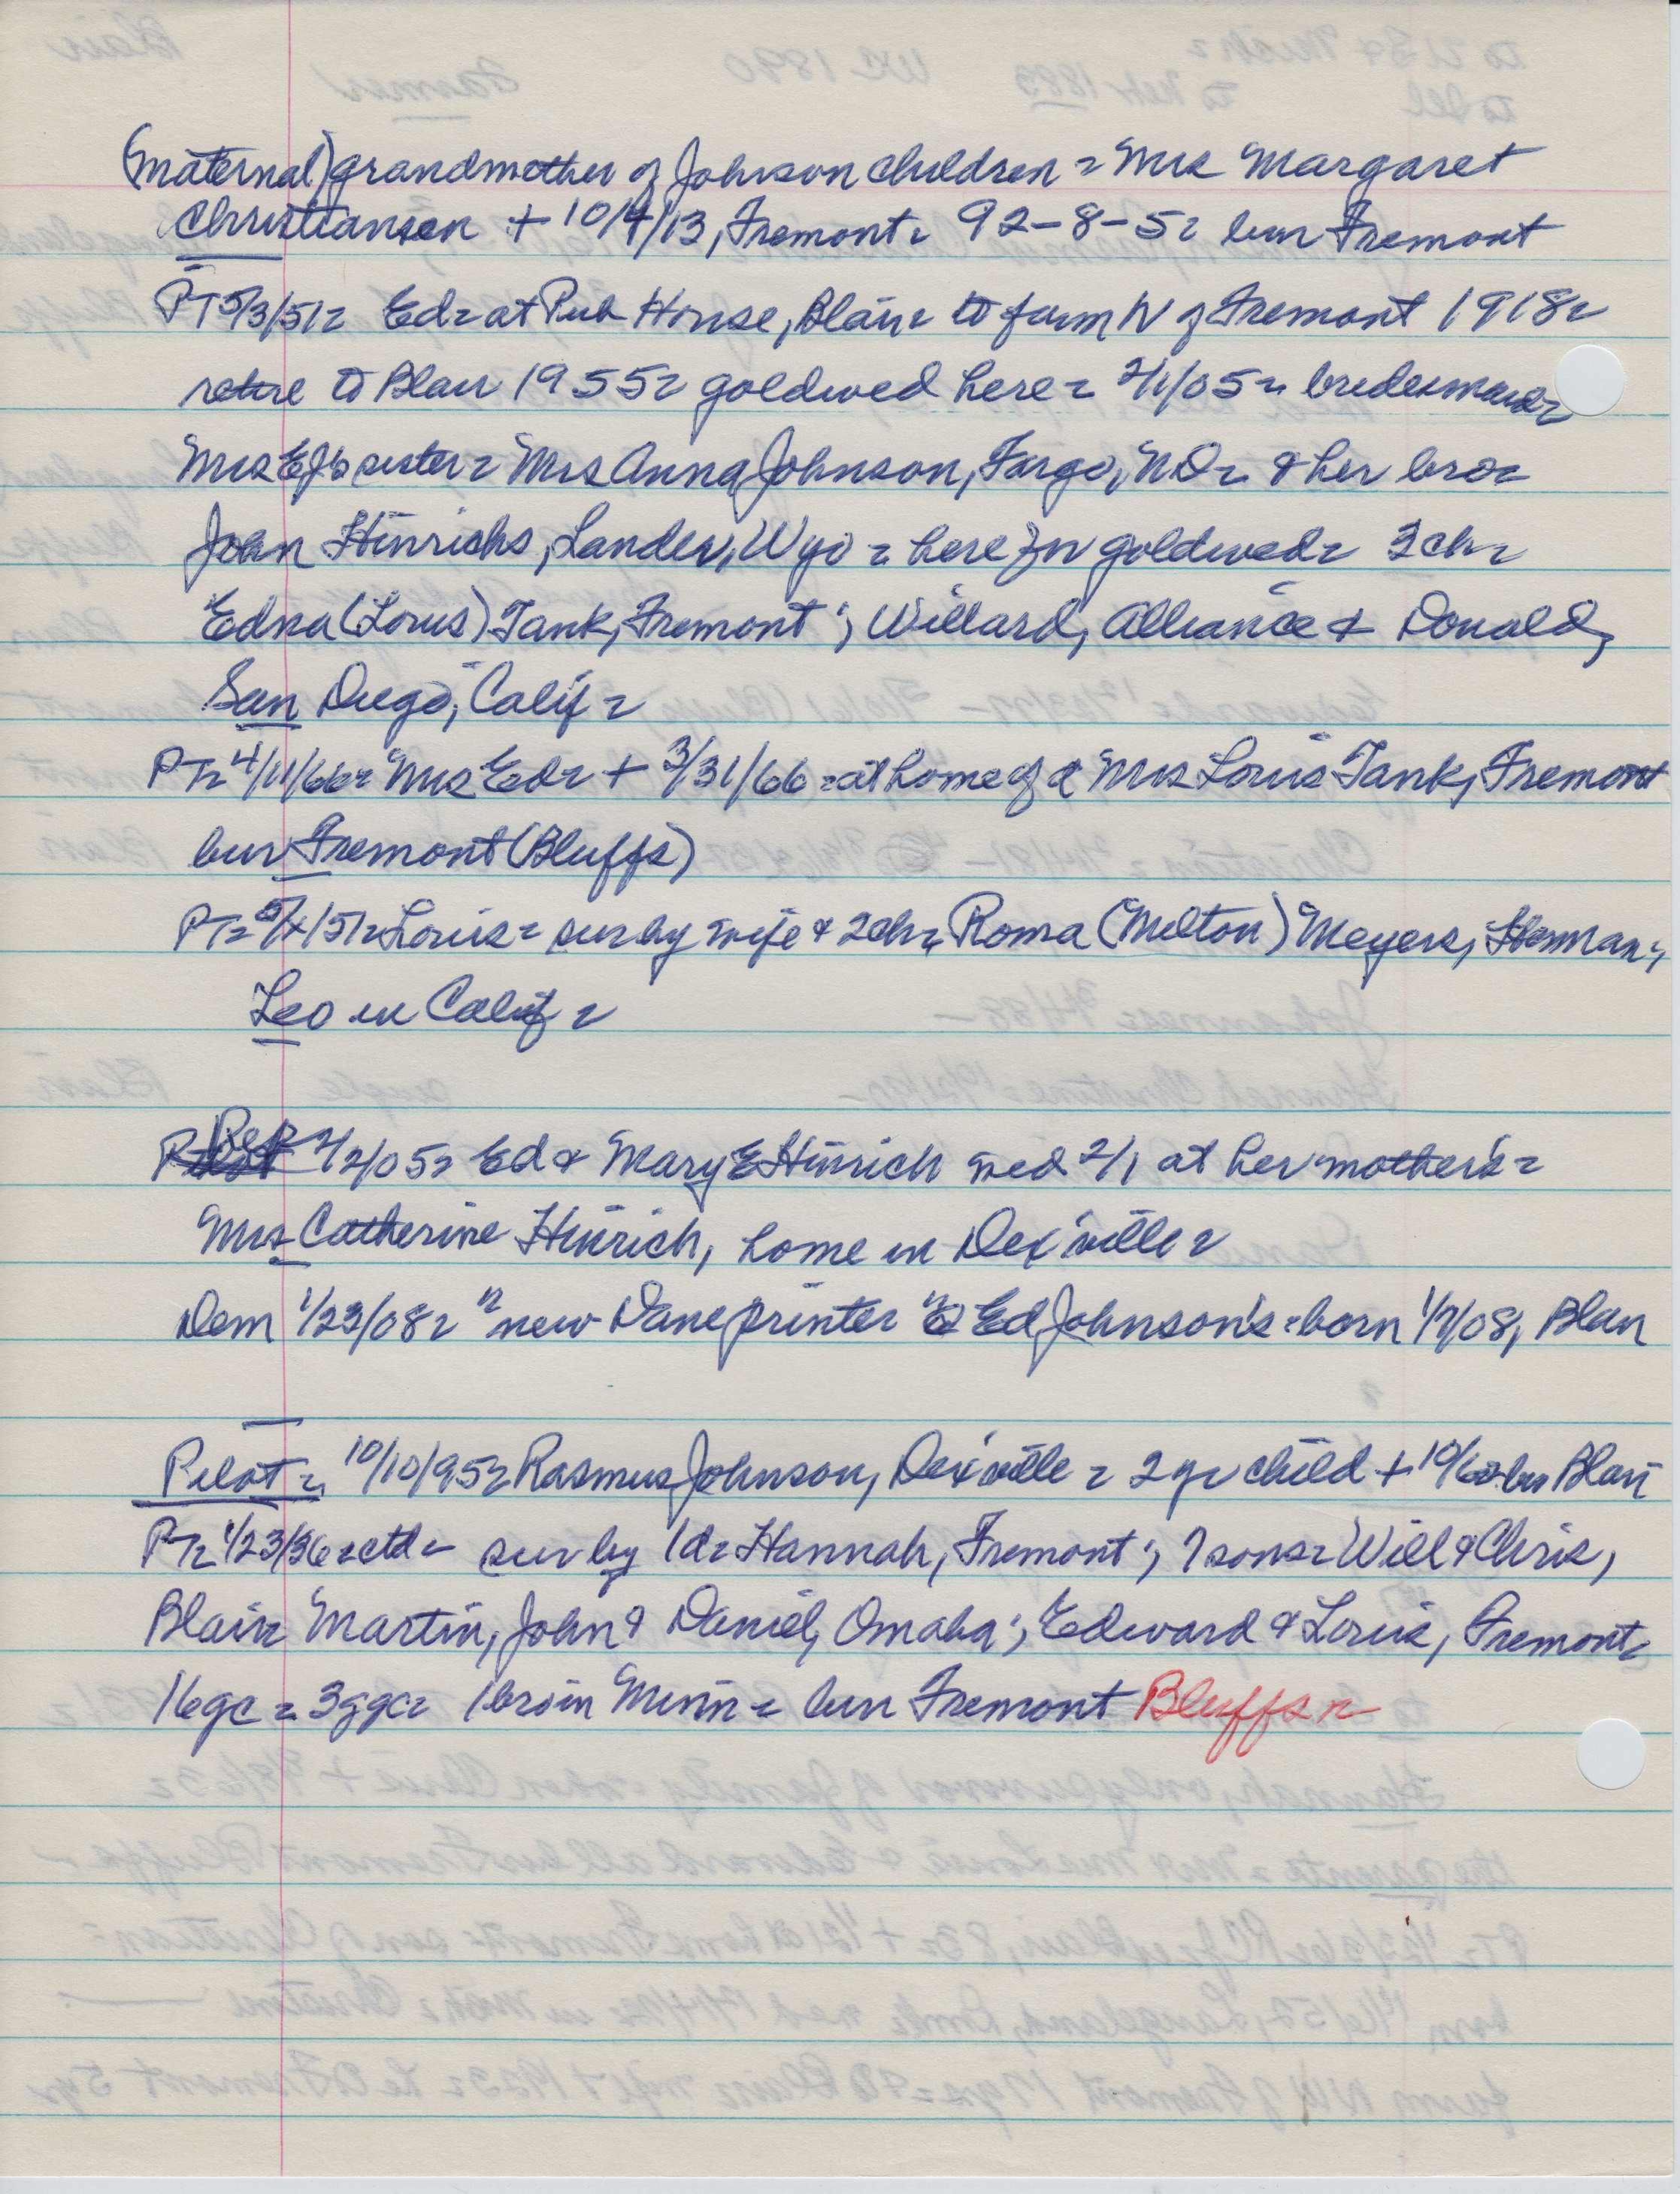 (maternal) grandmother of Johnson children = Mrs Margaret
Christiansen + 10/4/13, Fremont = 92-8-5 = bur Fremont
PT 5/3/51 = Ed = at Pub House, Blair = to farm W of Fremont 1918 =
retire to Blair 1955 = goldwed here = 2/1/05 = bridesmaid =
Mrs EJ's sister = Mrs Anna Johnson, Fargo, ND = & her bro =
John Hinrichs, Lander, Wyo = here for goldwed = 3 ch =
Edna (Louis) Tank, Fremont; Willard, Alliance & Donald,
San Diego, Calif =
PT = 4/11/66 = Mrs Ed = + 3/31/66 = at home of d Mrs Louis Tank, Fremont
bur Fremont (Bluffs)
PT = 51 = Louis = sur by wife & 2 ch = Roma (Milton) Meyers, Herman;
Leo in Calif =
Rep 2/2/05 = Ed & Mary E Hinrich wed 2/1 at her mother's =
Mrs Catherine Hinrich, home in Dex'ville =
Dem 1/23/08 = " new Dane printer " @ Ed Johnson's = born 1/7/08, Blair
Pilot = 10/10/95 = Rasmus Johnson, Dex'ville = 2 yr child + 10/6 = bu Blair
PT = 1/23/36 = ctd = sur by 1 d = Hannah, Fremont; 7 sons = Will & Chris,
Blair = Martin, John & Daniel, Omaha; Edward & Louis, Fremont =
16 gc = 3 ggc = 1 bro in Minn = bur Fremont Bluffs =